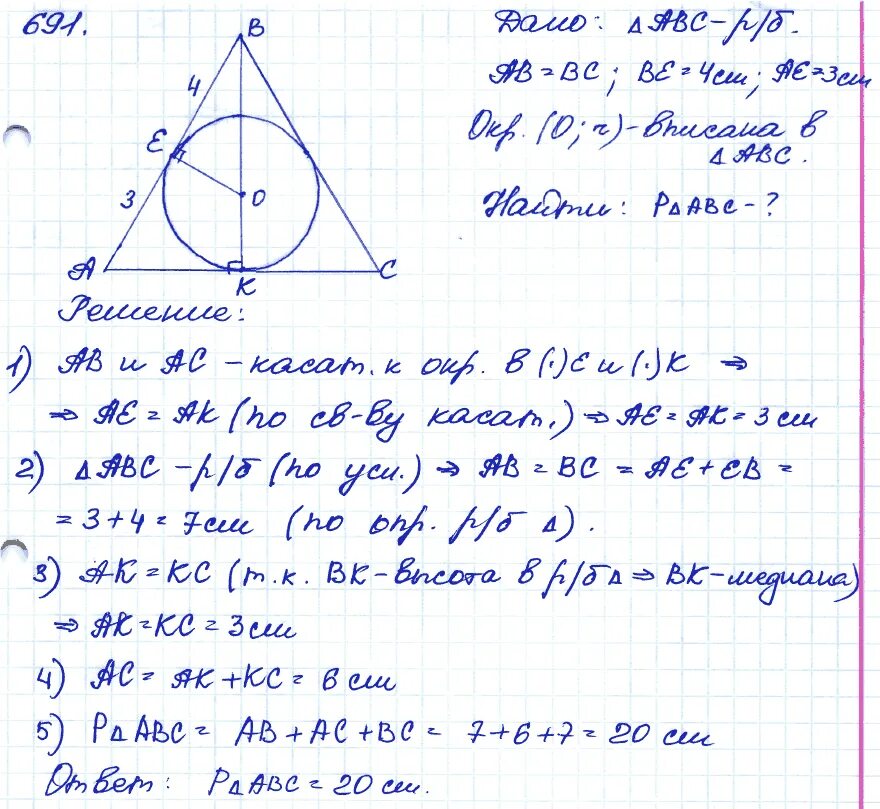 691.
B
4
E
3
O
A
K
C
Дано: △ABC – р/б.
AB = BC; BE = 4см; AE = 3см
Окр. (O; r) – вписана в
△ABC.
Найти: P△ABC – ?
Решение:
1) AB и AC – касат. к окр. в (·)E и (·)K ⇒
⇒ AE = AK (по св-ву касат.) ⇒ AE = AK = 3 см
2) △ABC – р/б (по усл.) ⇒ AB = BC = AE + EB =
= 3 + 4 = 7см (по опр. р/б △).
3) AK = KC (т.к. BK – высота в р/б △ ⇒ BK – медиана)
⇒ AK = KC = 3 см
4) AC = AK + KC = 6 см
5) P△ABC = AB + AC + BC = 7 + 6 + 7 = 20 см
Ответ: P△ABC = 20 см.